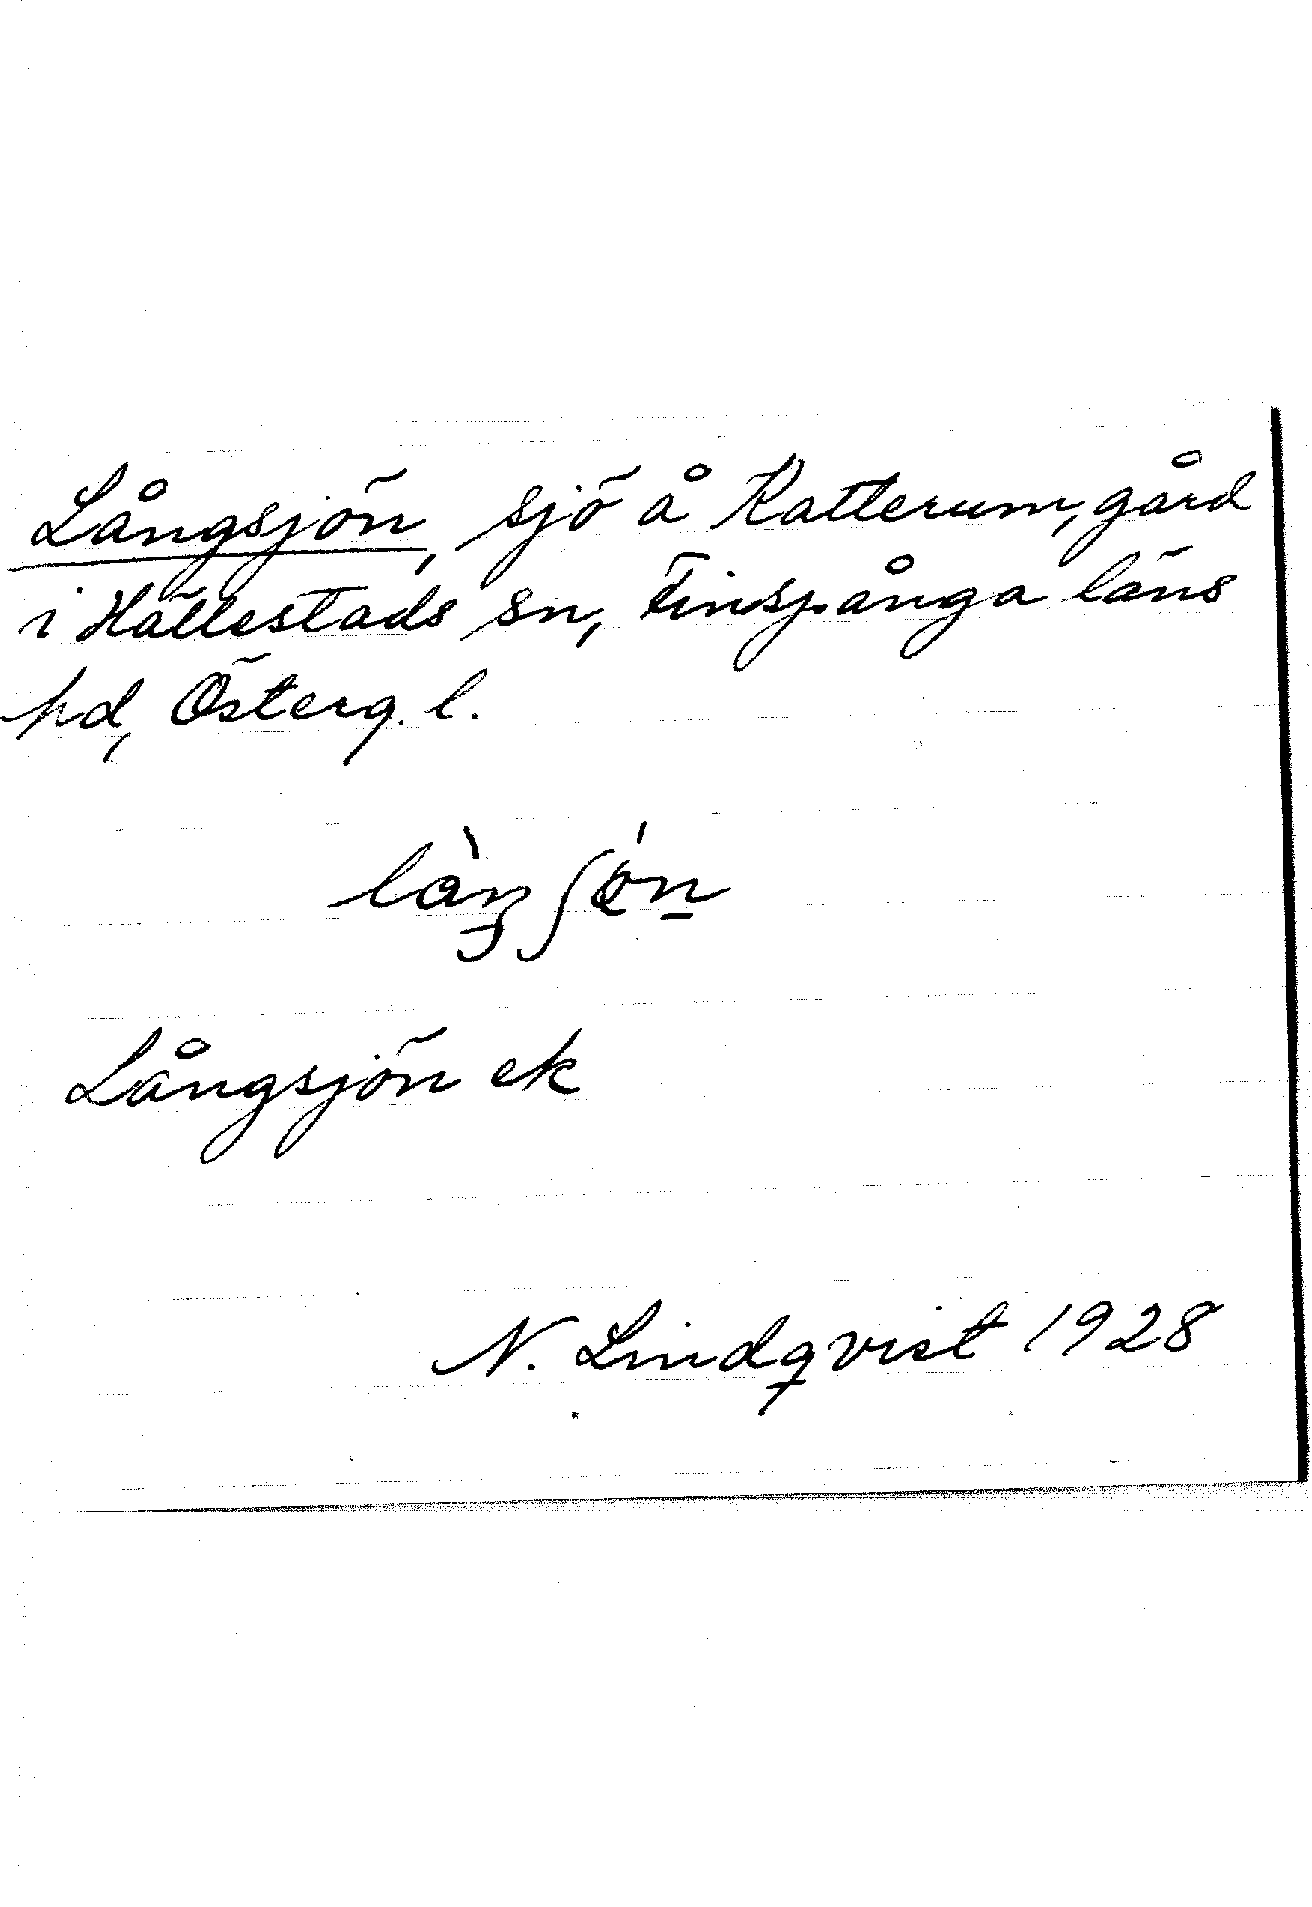 Långsjön, sjö å Katterum, gård
i Hällestads sn, Finspånga läns
hd, Österg. l.
Långsjön ek
N. Lindqvist 1928